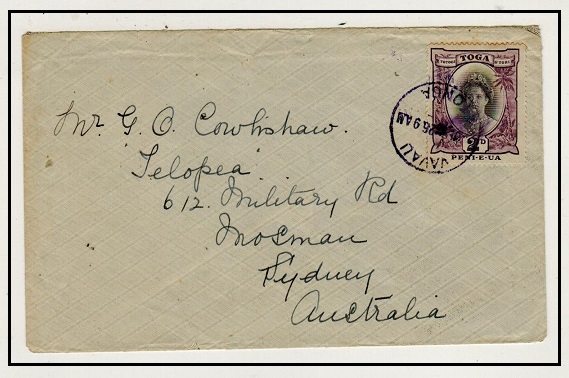 Mr G. O. Cowlishaw.
Telopea
612. Military Rd
Mosman
Sydney
Australia
TOGA
2D
PENI-E-UA
VAVAU
9 AM
TONGA